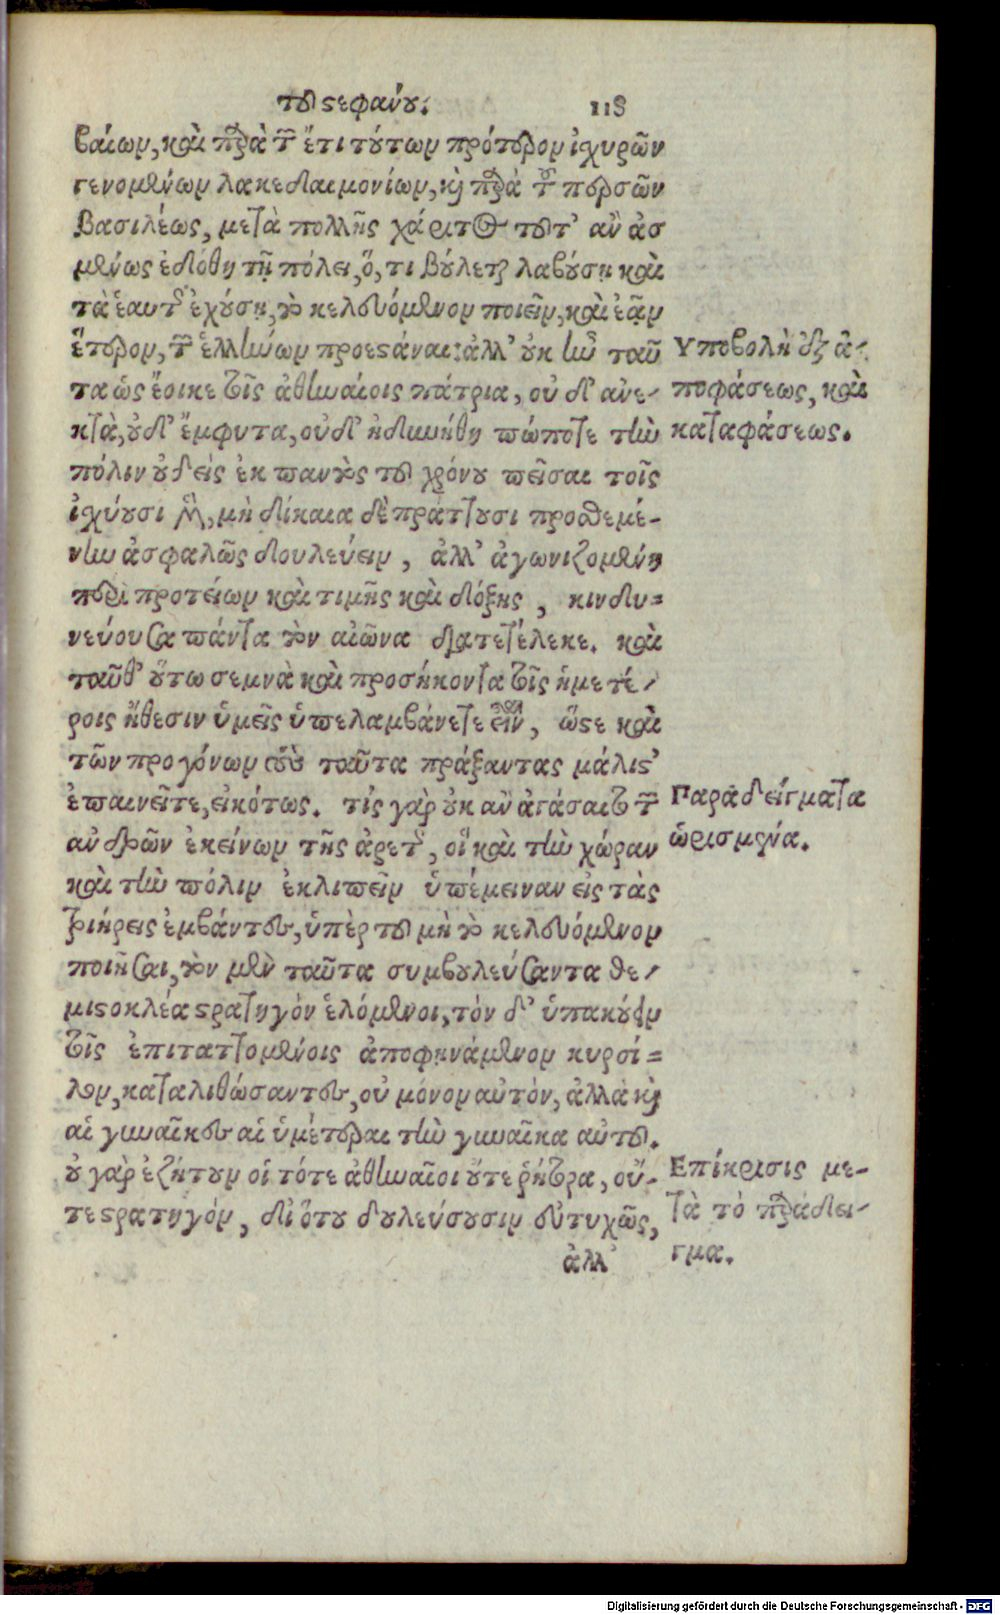 τοῦ στεφάνου. 118
βαίων, καὶ παρὰ τῶν ἔτι τούτων πρότερον ἰσχυρῶν
γενομένων λακεδαιμονίων, καὶ παρὰ τοῦ περσῶν
βασιλέως, μετὰ πολλῆς χάριτος τοῦτ' ἂν ἀσ
μένως ἐδόθη τῇ πόλει, ὅ, τι βούλεται λαβούσῃ καὶ
τὰ ἑαυτῆς ἐχούσῃ, τὸ κελευόμενον ποιεῖν, καὶ ἐᾷν
ἕτερον, τῶν ἑλλήνων προεστάναι: ἀλλ' οὐκ ἦν ταῦ
τα ὡς ἔοικε τοῖς ἀθηναίοις πάτρια, οὐ δ' ἀνε-
κτὰ, οὐδ' ἔμφυτα, οὐδ' ἠδυνήθη πώποτε τὴν
πόλιν οὐδεὶς ἐκ παντὸς τοῦ χρόνου πεῖσαι τοῖς
ἰσχύουσι μὲν, μὴ δίκαια δὲ πράττουσι προσθεμέ-
νην ἀσφαλῶς δουλεύειν, ἀλλ' ἀγωνιζομένη
περὶ προτείων καὶ τιμῆς καὶ δόξης, κινδυ-
νεύουσα πάντα τὸν αἰῶνα διατετέλεκε. καὶ
ταῦθ' οὕτω σεμνὰ καὶ προσήκοντα τοῖς ἡμετέ-
ροις ἤθεσιν ὑμεῖς ὑπελαμβάνετε εἶναι, ὥστε καὶ
τῶν προγόνων τοὺς ταῦτα πράξαντας μάλιστ'
ἐπαινεῖτε, εἰκότως. τίς γὰρ οὐκ ἂν ἀγάσαιτο τῶν
ἀνδρῶν ἐκείνων τῆς ἀρετῆς, οἳ καὶ τὴν χώραν
καὶ τὴν πόλιν ἐκλιπεῖν ὑπέμειναν εἰς τὰς
τριήρεις ἐμβάντες, ὑπὲρ τοῦ μὴ τὸ κελευόμενον
ποιῆσαι, τὸν μὲν ταῦτα συμβουλεύσαντα θε-
μιστοκλέα στρατηγὸν ἑλόμενοι, τὸν δ' ὑπακούειν
τοῖς ἐπιταττομένοις ἀποφηνάμενον κυρσί-
λον, καταλιθώσαντες, οὐ μόνον αὐτὸν, ἀλλὰ καὶ
αἱ γυναῖκες αἱ ὑμέτεραι τὴν γυναῖκα αὐτοῦ.
οὐ γὰρ ἐζήτουν οἱ τότε ἀθηναῖοι οὔτε ῥήτορα, οὔ-
τε στρατηγόν, δι' ὅτου δουλεύσουσιν εὐτυχῶς,
ἀλλ'
Υποβολὴ ἐξ ἀ-
ποφάσεως, καὶ
καταφάσεως.
Παραδείγματα
ὡρισμένα.
Επίκρισις με-
τὰ τὸ παράδει-
γμα.
Digitalisierung gefördert durch die Deutsche Forschungsgemeinschaft - DFG